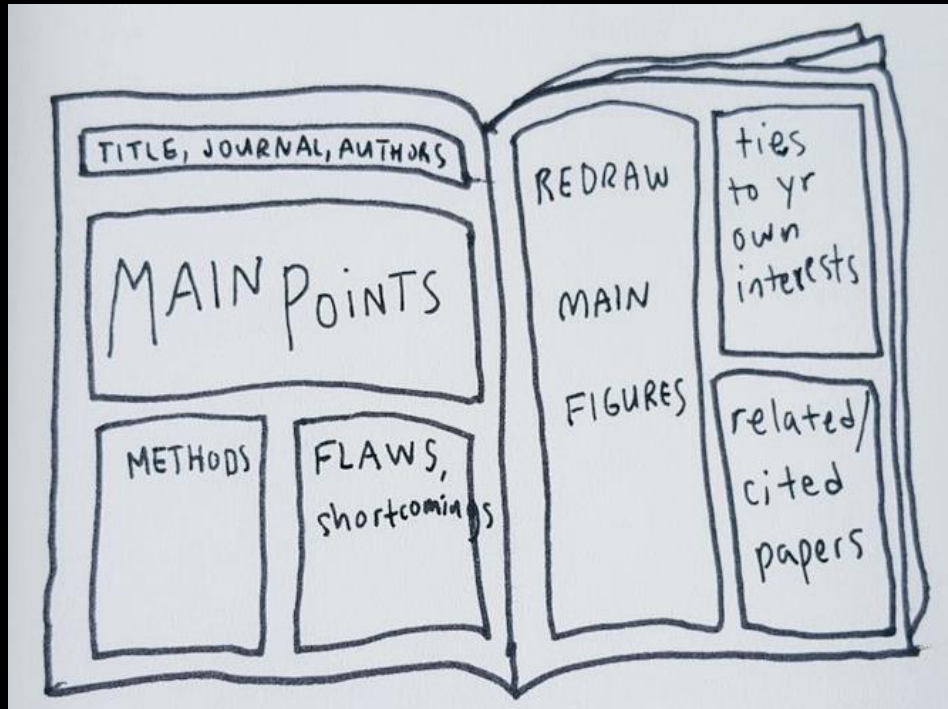 TITLE, JOURNAL, AUTHORS
MAIN POINTS
METHODS
FLAWS,
shortcomings
REDRAW
MAIN
FIGURES
ties
to yr
own
interests
related/
cited
papers